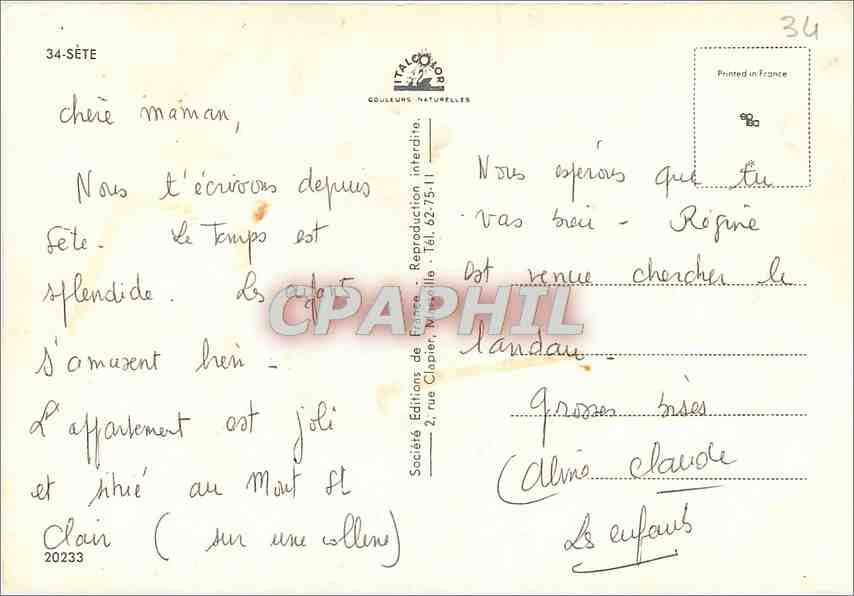 34
34-SÈTE
ITALCOLOR
COULEURS NATURELLES
Printed in France
chère maman,
Nous t'écrivons depuis
Sète. Le Temps est
splendide. Les enfants
s'amusent bien -
L'appartement est joli
et situé au Mont St
Clair ( sur une colline)
20233
Société Editions de France - Reproduction interdite.
2, rue Clapier, Marseille - Tél. 62-75-11
CPAPHIL
Nous espérons que tu
vas bien - Régine
est venue chercher le
landau -
grosses bises
Claude
Les enfants